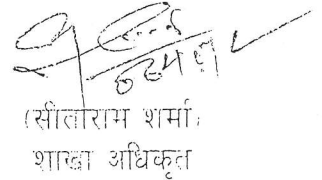 (सीताराम शर्मा)
शाखा अधिकृत